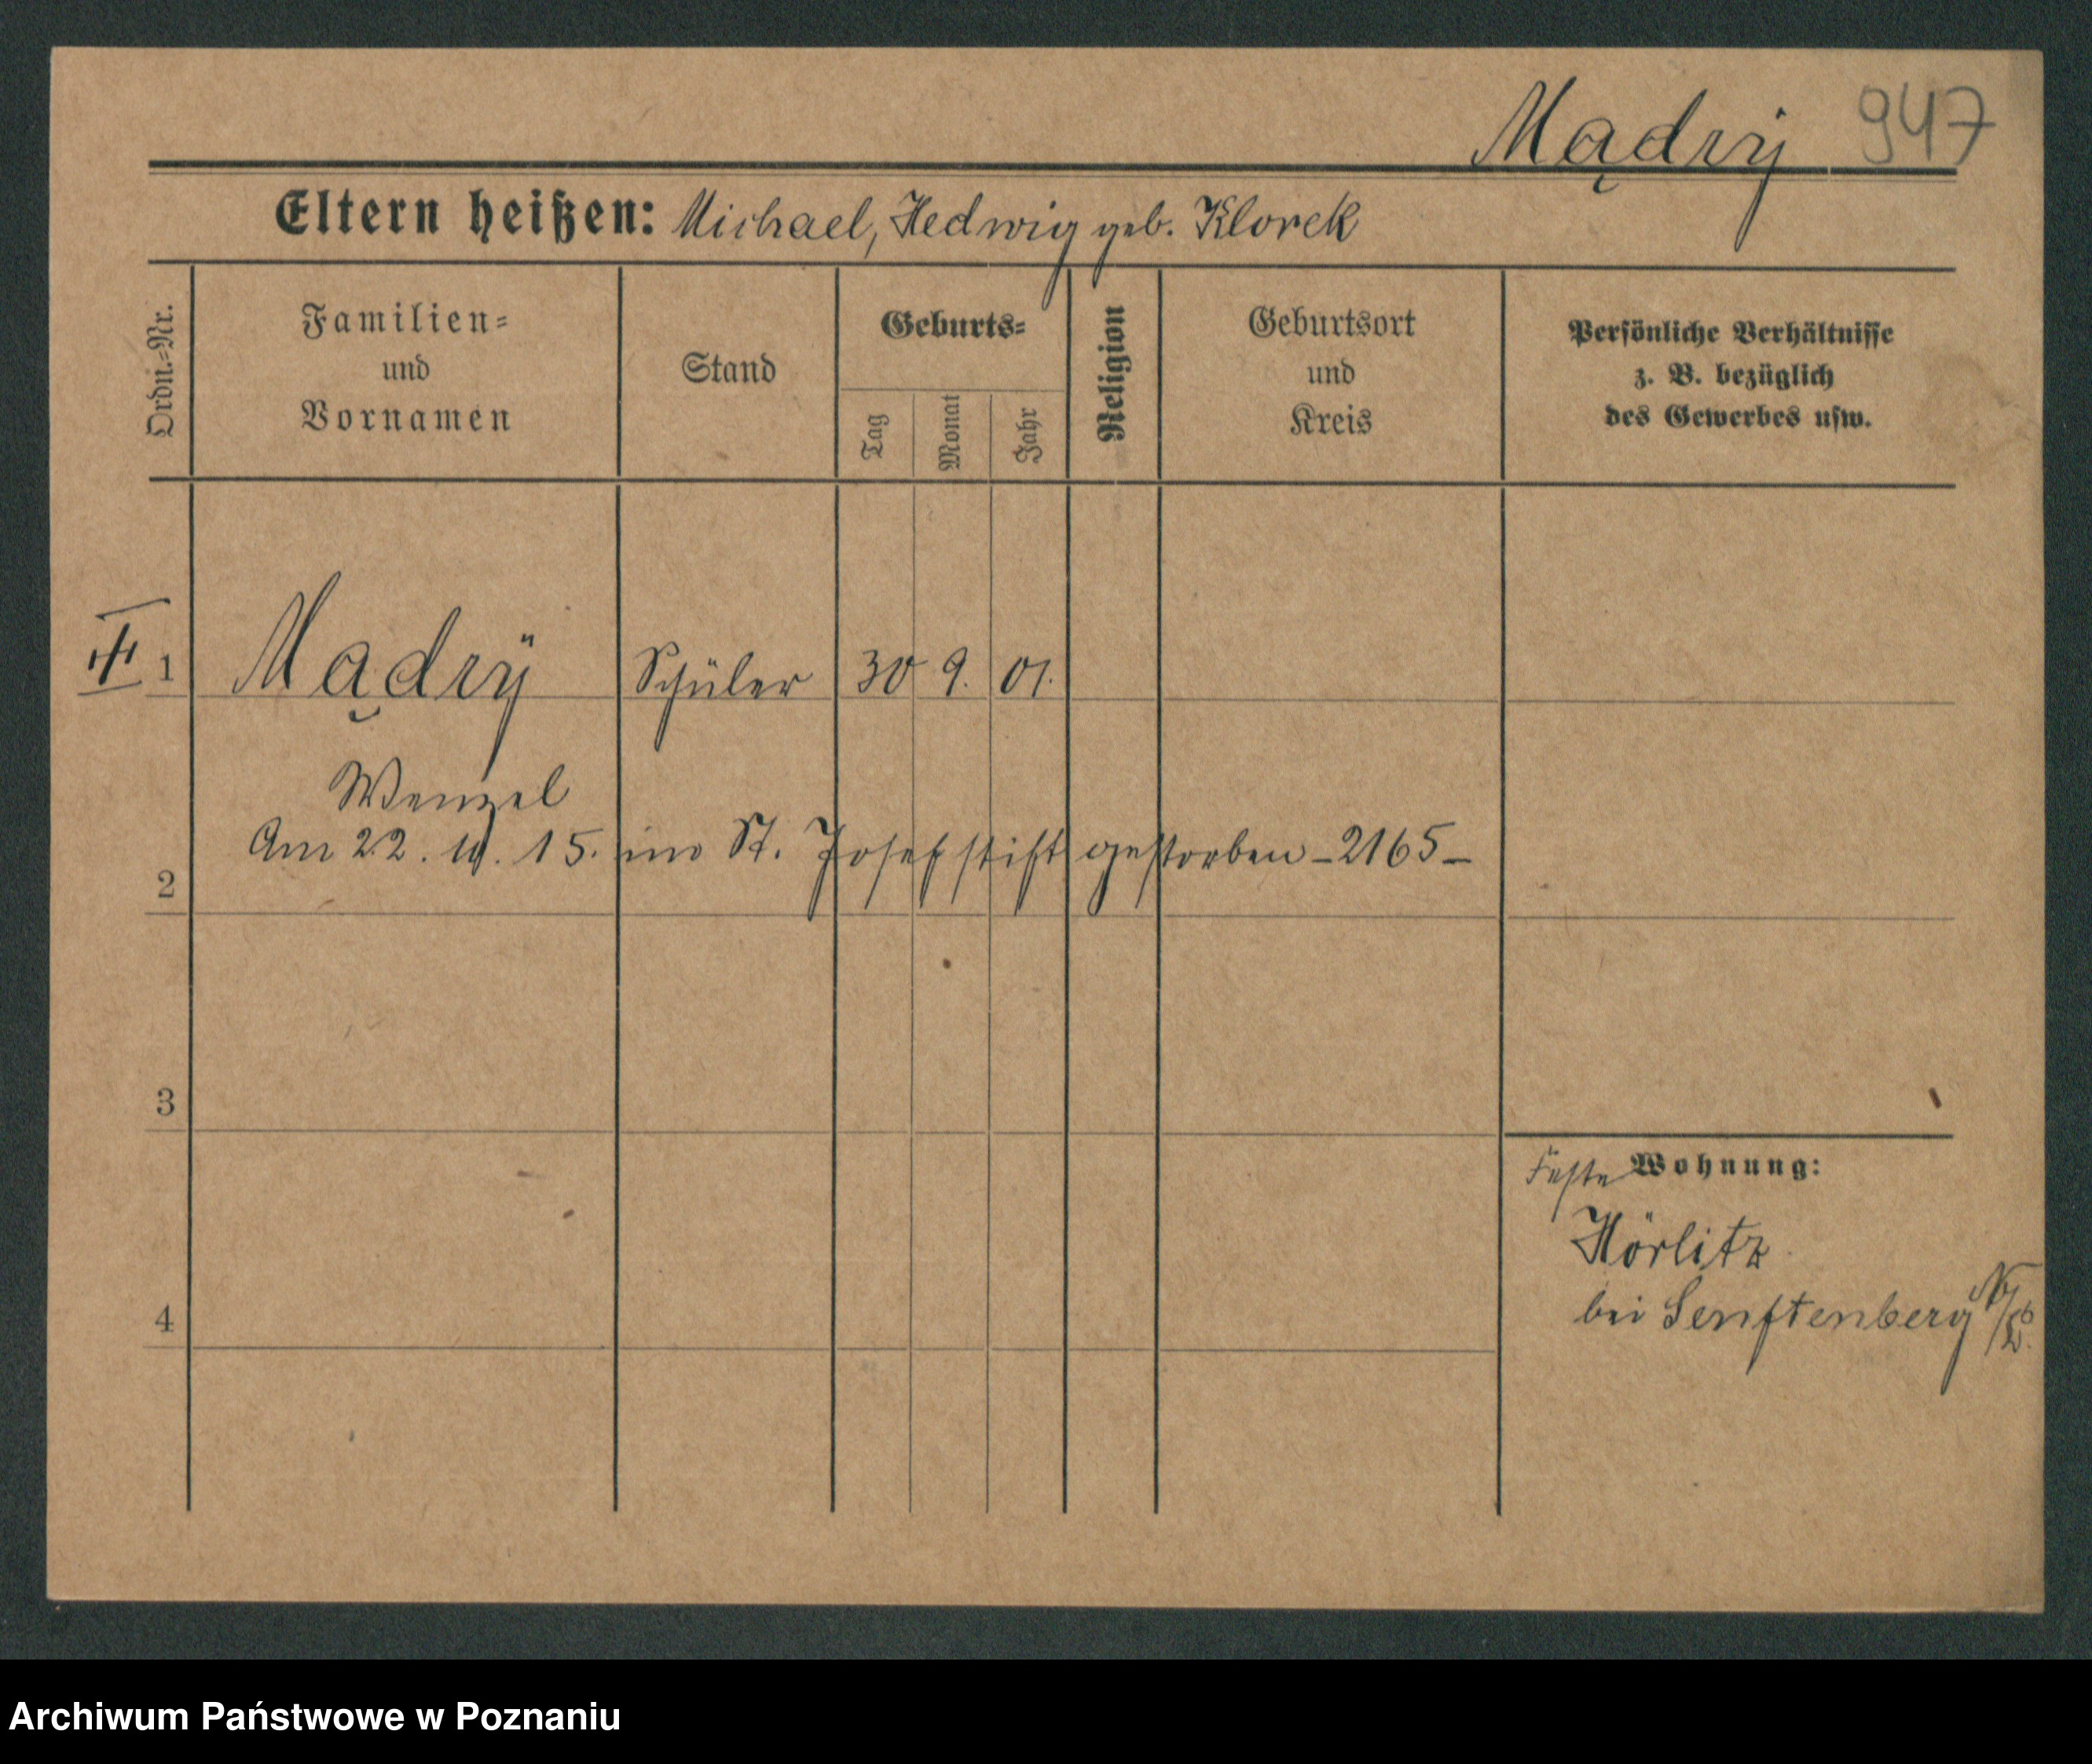 Mądry 947
Eltern heißen: Michael, Hedwig geb. Klorek
Ordn.-Nr.
Familien-
und
Vornamen
Stand
Geburts-
Tag
Monat
Jahr
Religion
Geburtsort
und
Kreis
Persönliche Verhältnisse
z. B. bezüglich
des Gewerbes usw.
1 Mądrÿ Schüler 30 9. 01.
Wenzel
Am 22. 10. 15. im St. Josefstift gestorben - 2165 -
2
3
Feste Wohnung:
Hörlitz
bei Senftenberg N/L.
4
Archiwum Państwowe w Poznaniu